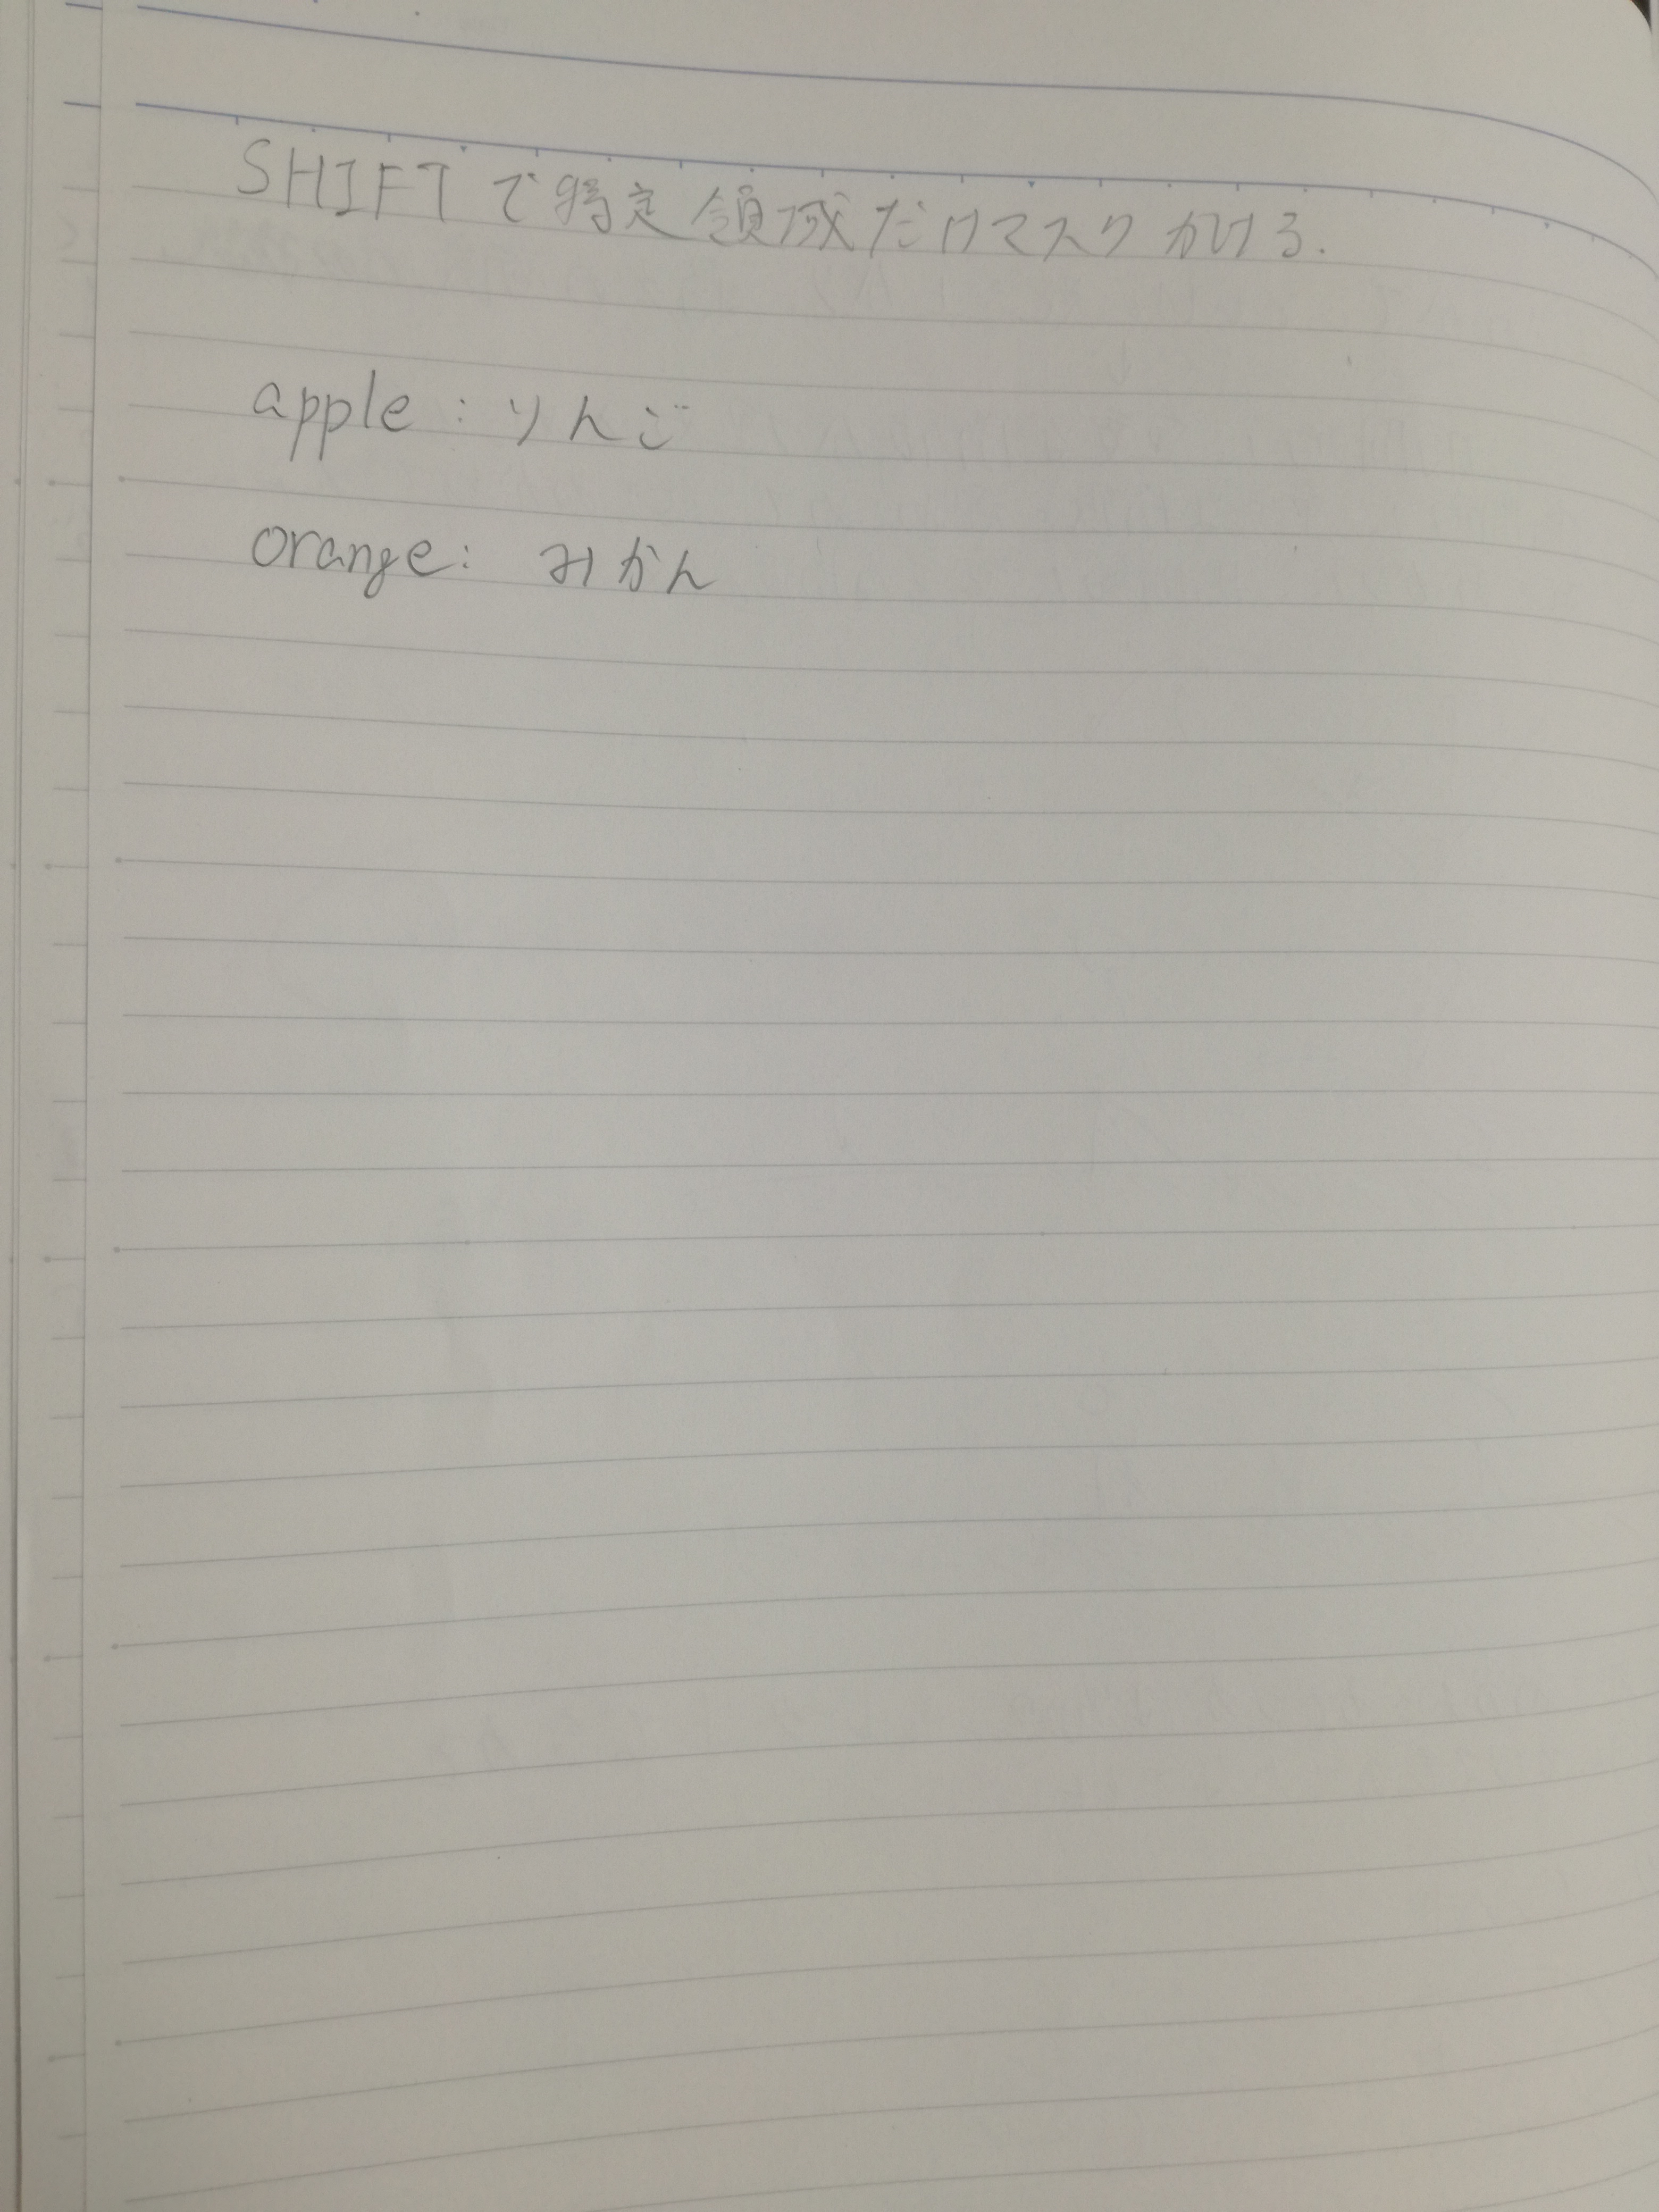 SHIFTで特定領域だけマスクかける.
apple : りんご
orange: みかん